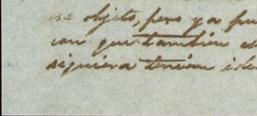 objeto, pero ya
con que tambien
siquiera tenian